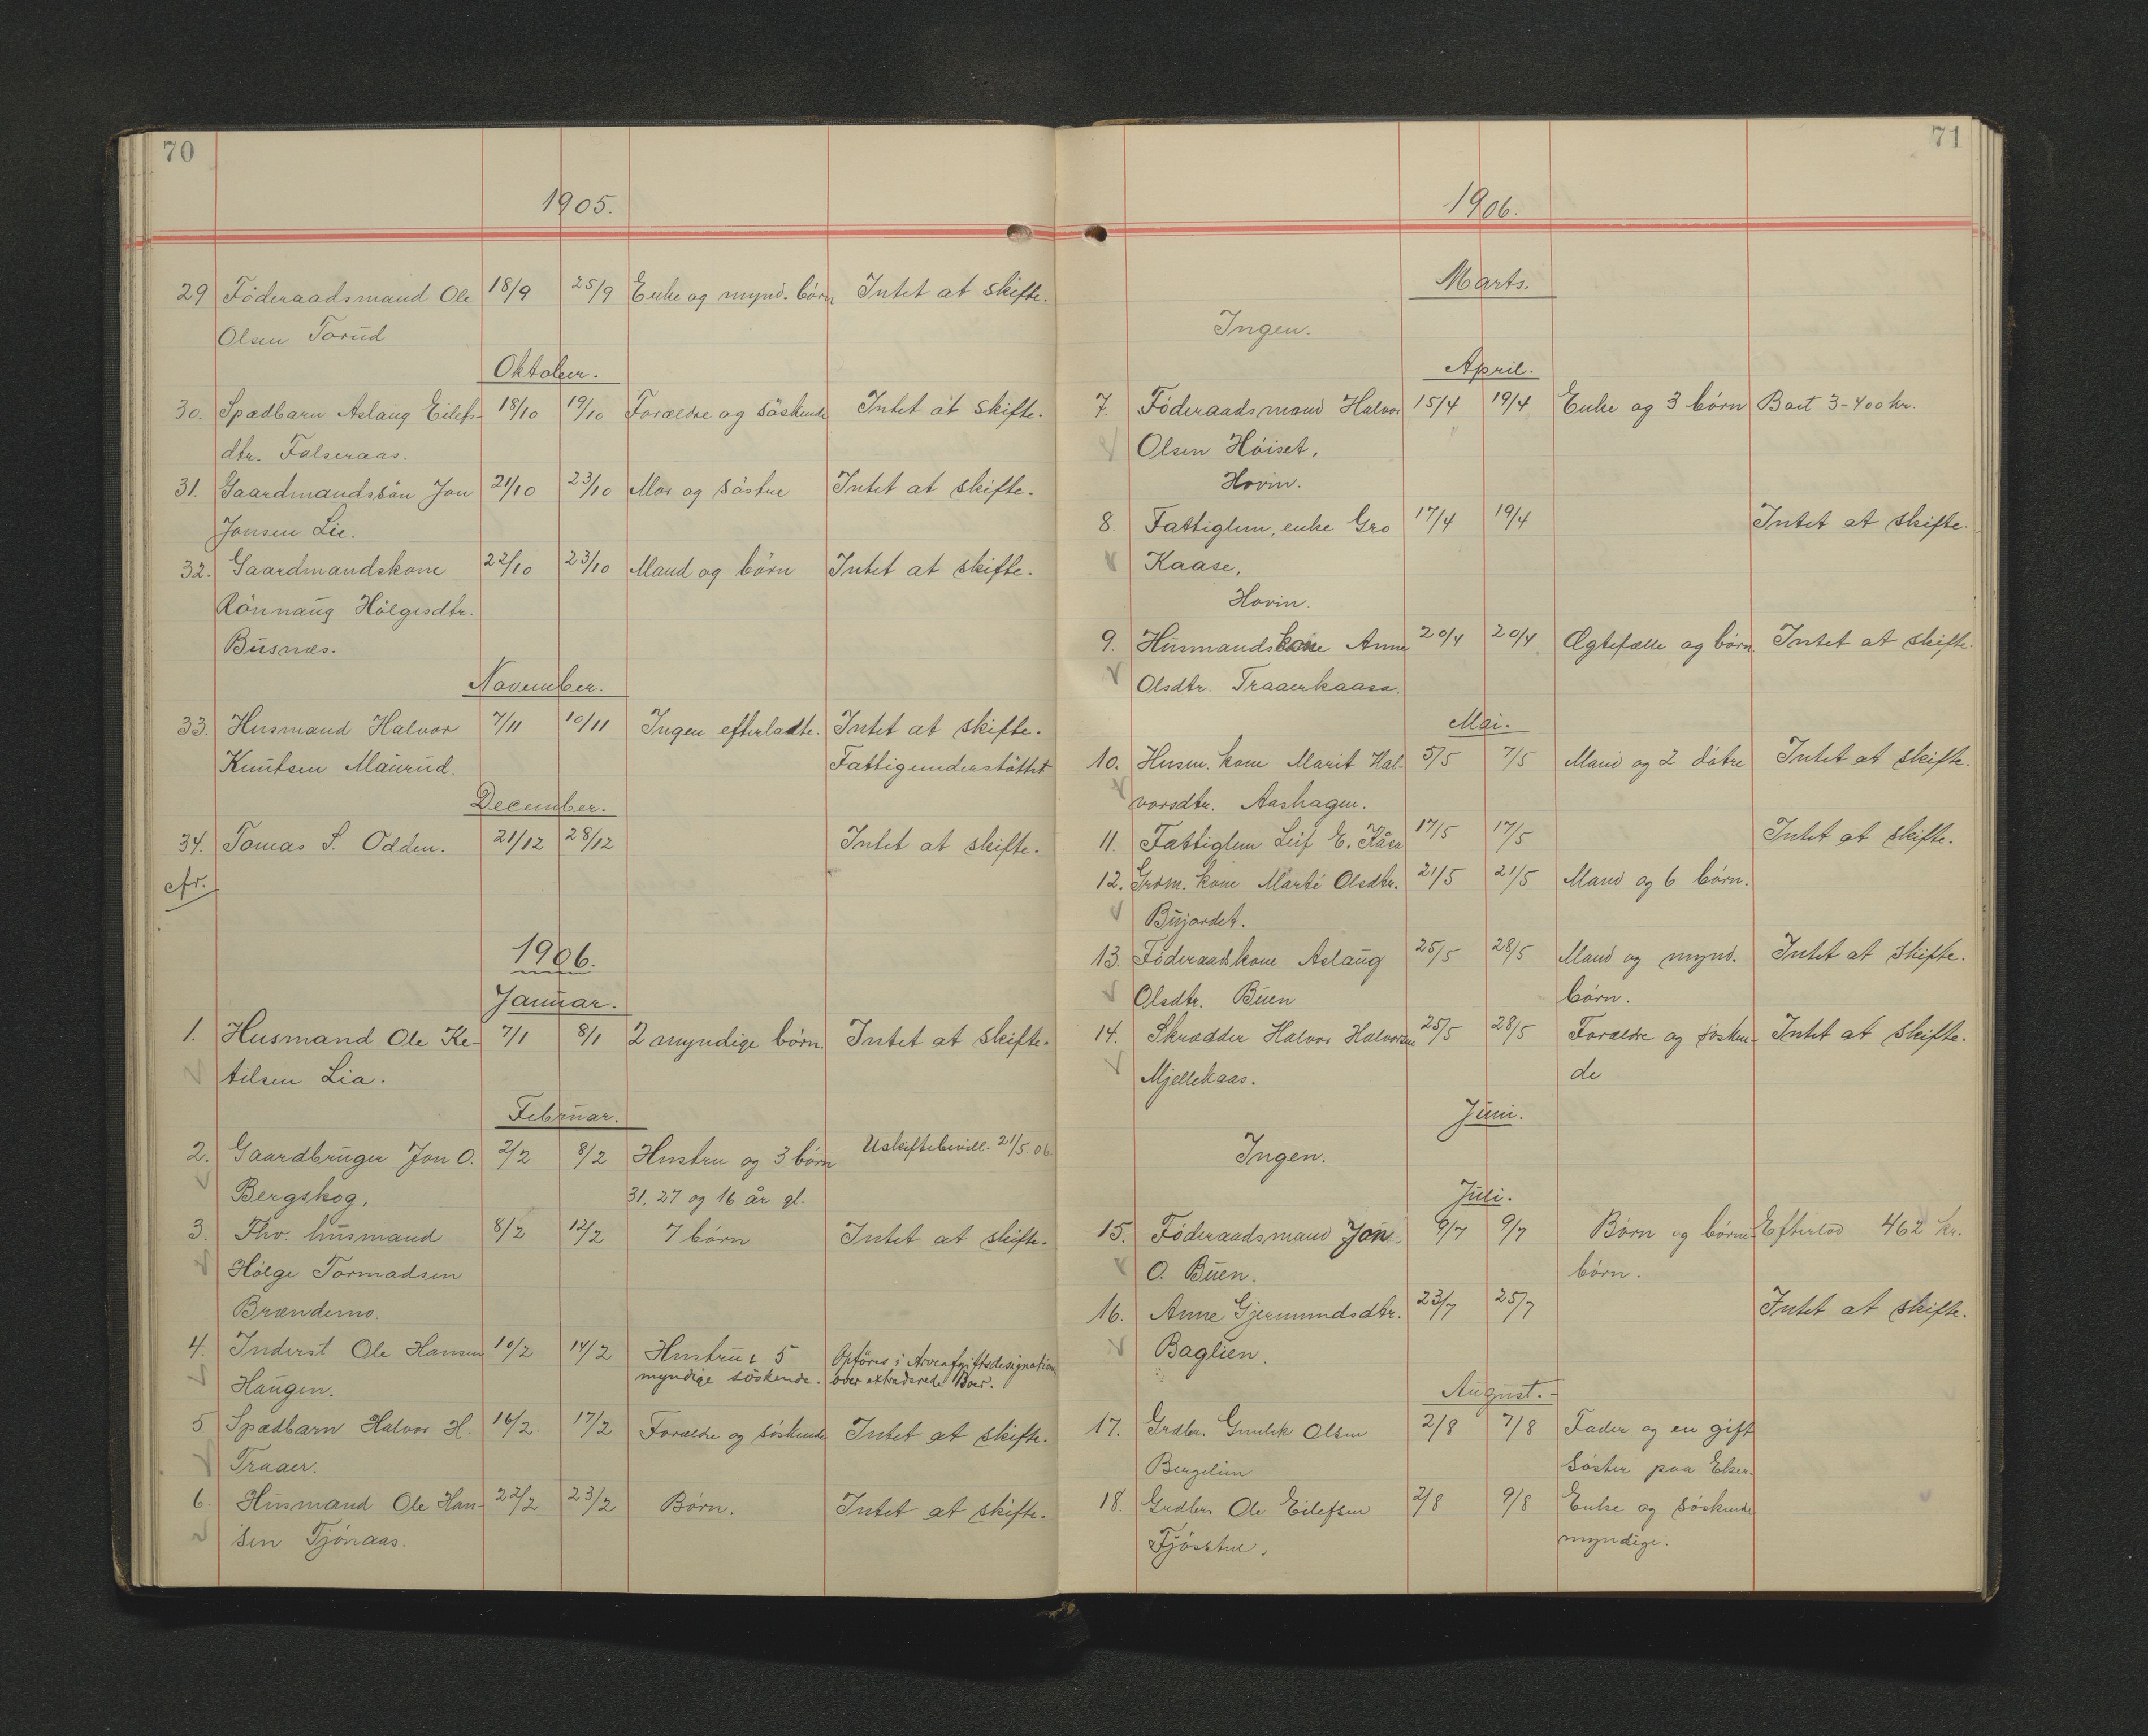 70
1905.
29 Föderaadsmand Ole 18/9 25/9 Enke og mynd. börn Intet at skifte.
Olsen Torud
Oktober.
30. Spædbarn Aslaug Eilefs- 18/10 19/10 Forældre og söskende Intet at skifte.
dtr. Falseraas.
31. Gaardmandssön Jon 21/10 23/10 Mor og söstre Intet at skifte.
Jonsen Lie.
32. Gaardmandskone 22/10 23/10 Mand og börn Intet at skifte.
Rönnaug Hölgesdtr.
Busnæs.
November.
33. Husmand Halvor 7/11 10/11 Ingen efterladte. Intet at skifte.
Knutsen Maurud. Fattigunderstöttet
December.
34. Tomas S. Odden. 21/12 28/12 Intet at skifte.
cfr.
1906.
Januar.
1. Husmand Ole Ke- 7/1 8/1 2 myndige börn. Intet at skifte.
tilsen Lia.
Februar.
2. Gaardbruger Jon O. 2/2 8/2 Hustru og 3 börn Uskiftebevill. 21/5.06.
Bergskog, 31, 27 og 16 år gl.
3. Fhv. husmand 8/2 12/2 7 börn Intet at skifte.
Hölge Tormodsen
Brændemo.
4. Inderst Ole Hansen 10/2 14/2 Hustru & 5 Opföres i Arveafgiftsdesignation
Haugen. myndige söskende. over extraderede Boer.
5 Spædbarn Halvor H. 16/2. 17/2 Forældre og söskende Intet at skifte.
Traaer.
6. Husmand Ole Han- 22/2 23/2 Börn. Intet at skifte.
sen Tjönaas.
71
1906.
Marts.
Ingen.
April.
7. Föderaadsmand Halvor 15/4 19/4 Enke og 3 börn Boet 3-400 kr.
Olsen Höiset,
Hovin.
8. Fattiglem, enke Gro 17/4 19/4 Intet at skifte.
Kaase,
Hovin.
9. Husmandskone Anne 20/4 20/4 Ægtefælle og börn Intet at skifte.
Olsdtr. Traaerkaasa.
Mai.
10. Husm. kone Marit Hal- 5/5 7/5 Mand og 2 dötre Intet at skifte.
vorsdtr. Aashagen.
11. Fattiglem Leif E. Kåsa 17/5 17/5 Intet at skifte.
12. Grdm. kone Marte Olsdtr. 21/5 21/5 Mand og 6 börn.
Bujordet.
13. Föderaadskone Aslaug 25/5 28/5 Mand og mynd. Intet at skifte.
Olsdtr. Buen börn.
14. Skrædder Halvor Halvorsen 25/5 28/5 Forældre og sösken- Intet at skifte.
Mjellekaas. de
Juni.
Ingen.
Juli.
15. Föderaadsmand Jon 9/7 9/7 Börn og börne- Efterlod 462 kr.
O. Buen. börn.
16. Anne Gjermundsdtr. 23/7 25/7 Intet at skifte.
Baglien.
August.
17. Grdbr. Gunlek Olsen 2/8 7/8 Fader og en gift
Bergelien söster paa Eker.
18. Grdbr. Ole Eilefsen 2/8 9/8 Enke og söskende
Tjösstul, myndige.